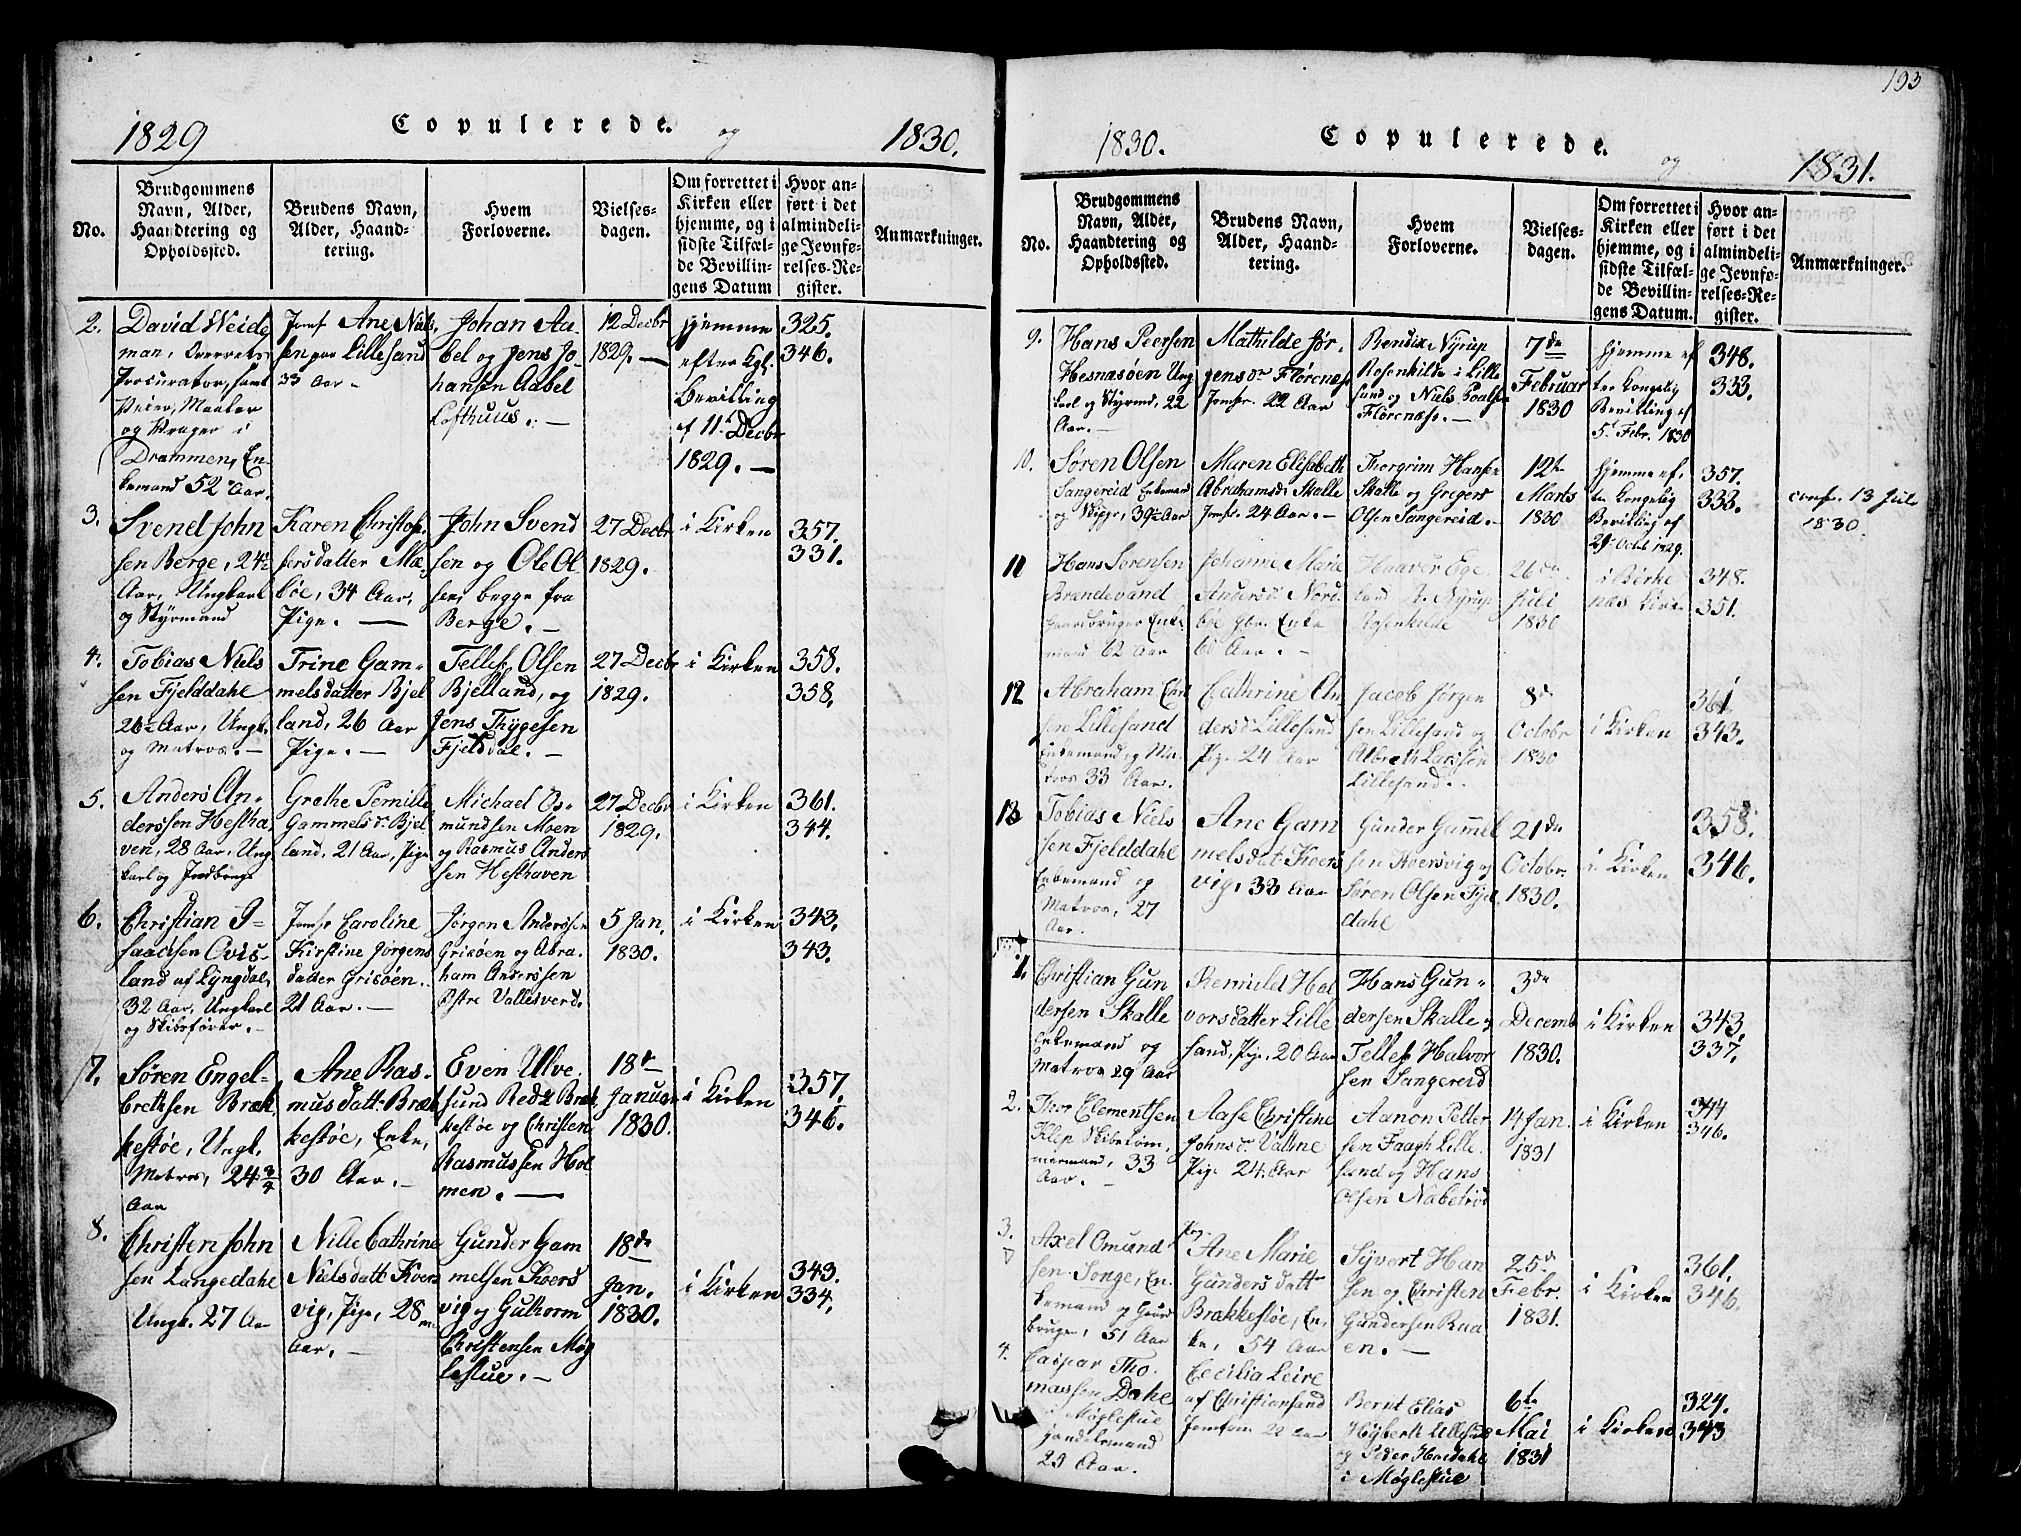 193
1829 Copulerede. og 1830.
No.
Brudgommens
Navn, Alder,
Haandtering og
Opholdssted.
Brudens Navn,
Alder, Haand-
tering.
Hvem
Forloverne.
Vielses-
dagen.
Om forrettet i
Kirken eller
hjemme, og i
sidste Tilfæl-
de Bevillin-
gens Datum
Hvor an-
ført i det
almindeli-
ge Jevnfø-
relses-Re-
gister.
Anmærkninger.
2.
David Weide
man, Overrets
Procurator, samt
Veier, Maaler
og Vrager i
Drammen, En-
kemand 52 Aar.
Jomf Ane Niels
sen paa Lillesand
33 Aar –
Johan Aa-
bel og Jens Jo-
hansen Aabel
Lofthuus. –
12 Decbr
1829. –
hjemme
efter Kgl.
Bevilling
af 11. Decbr
1829. –
325.
346.
3.
Svend John
sen Berge, 24½
Aar, Ungkarl
og Styrmand
Karen Christop-
hersdatter Mæ-
bøe, 34 Aar,
Pige. –
John Svend
sen og Ole Ol-
sen, begge fra
Berge. –
27 Decbr
1829.
i Kirken
357.
331.
4.
Tobias Niels
sen Fjelddahl
26½ Aar, Ungk.
og Matros. –
Trine Gam-
melsdatter Bjel
land, 26 Aar
Pige. –
Tellef Olsen
Bjelland, og
Jens Thygesen
Fjeldal. –
27 Decbr
1829.
i Kirken
358.
358.
5.
Anders An-
derssen Hestha-
ven, 28 Aar, Ung
karl og Jordbruger
Grethe Pernille
Gammelsdr Bjel
land, 21 Aar, Pige
Michael Os-
mundsen Moen
og Rasmus Anders
sen Hesthaven
27 Decbr
1829.
i Kirken
361.
344.
6.
Christian I-
saacsen Qvis-
land af Lyngdal,
32 Aar, Ungkarl
og Skibsfører. –
Jomfr Caroline
Kirstine Jørgens
datter Grisøen.
21 Aar. –
Jørgen Anderssen
Grisøen og Abra-
ham Anderssen
Østre Vallesverd.
5 Jan.
1830.
i Kirken
343.
343.
7.
Søren Engel-
brethsen Bræk
kestøe, Ungk.
Matros, 24¾
Aar
Ane Ras-
musdatt. Bræk
kestøe, Enke,
30 Aar. –
Even Ulve-
sund Reda Bræk
kestøe og Christen
Rasmussen Hol
men. –
18de
Januar
1830.
i Kirken
357.
346.
8.
Christen John
sen Langedahl
Ungk. 27 Aar
Nille Cathrine
Nielsdatt Kvers
vig, Pige, 28
Aar. –
Gunder Gam
melsen Kvers
vig og Guthorm
Christensen Møg
lestue. –
18de
Jan.
1830.
i Kirken
343.
334.
1830. Copulerede. og 1831.
No.
Brudgommens
Navn, Alder,
Haandtering og
Opholdssted.
Brudens Navn,
Alder, Haand-
tering.
Hvem
Forloverne.
Vielses-
dagen.
Om forrettet i
Kirken eller
hjemme, og i
sidste Tilfæl-
de Bevillin-
gens Datum.
Hvor an-
ført i det
almindeli-
ge Jevnfø-
relses-Re-
gister.
Anmærkninger.
9.
Hans Peersen
Hesnæsøen Ung
karl og Styrmd, 22
Aar. –
Mathilde Jør-
gensdr Florenæs
Jomfr. 22 Aar
Bendix Nyrup
Rosenkilde i Lille
sand og Niels Poulsen
Florenæs. –
7de
Februar
1830
hjemme ef
ter Kongelig
Bevilling af
5t Febr. 1830
348.
333.
10.
Søren Olsen
Sangereid Enkemand
og Skipper, 39½ Aar
Maren Elisabeth
Abrahamsdr Skalle
Jomfr. 24 Aar. –
Thorgrim Hansen
Skalle og Gregers
Olsen Sangereid. –
12te
Marts
1830
hjemme ef.
ter Kongelig
Bevilling af
29 Octob 1829.
357.
333.
conf. 13 Juli
1830.
11
Hans Sørensen
Brændevand
Gaardbruger Enke
mand 62 Aar
Johanne Marie
Andersdr Nord
bøe Gbr. Enke
60 Aar. –
Haaver Ege
land B. Nyrup
Rosenkilde
26de
Juli
1830
i Birke
næs Kirke
348.
351.
12
Abraham Chri
sen Lillesand
Enkemand og Ma-
tros 33 Aar.
Cathrine An
dersd Lillesand
Pige 24 Aar
Jacob Jørgen
sen Lillesand og
Albreth Larssen
Lillesand. –
8de
Octobr
1830
i Kirken
361
343.
13
Tobias Niels
sen Fjelddahl
Enkemand og
Matros, 27
Aar.
Ane Gam
melsdat Kvers
vig, 33 Aar
Gunder Gamel
sen Kversvig og
Søren Olsen Fjel
dahl
21de
Octobr.
1830.
i Kirken
358.
346.
1.
Christian Gun
dersen Skalle
Enkemand og
Matros 29 Aar
Remild Hal
vorsdatter Lille
sand, Pige, 20 Aar
Hans Gun-
dersen Skalle og
Tellef Halvor
sen Sangereid
3de
Decemb
1830.
i Kirken
343.
337.
2.
Thor Clementsen
Klep Skibstøm,
mermand, 33
Aar. –
Aase Christine
Johnsdr Vallne
Pige 24 Aar
Aanon Petter
sen Faagh Lille
sand og Hans
Olsen Nabetrød
14 Jan.
1831
i Kirken
344
346.
3.
Axel Omund
sen Songe, En
kemand og Gaard
bruger, 51 Aar
Ane Marie
Gundersdatt
Brækkestøe, En
ke, 54 Aar
Syvert Han
sen og Christen
Gundersen Rua
en. –
25de
Febr.
1831.
i Kirken
361.
346.
4.
Caspar Tho-
massen Dahl
i Møglestue
Handelsmand
25 Aar.
Cecilia Leire
af Christiansand
Jomfrue 22 Aar
Bernt Elias
Hyberth Lillesand
og Peder Hardahl
i Møglestue
6te
Mai
1831
i Kirken
324.
343